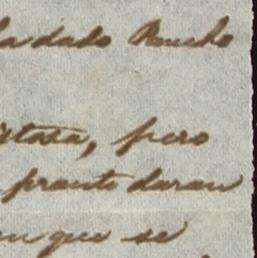 la dado Mucho
stosa, pero
pronto daran
en que se